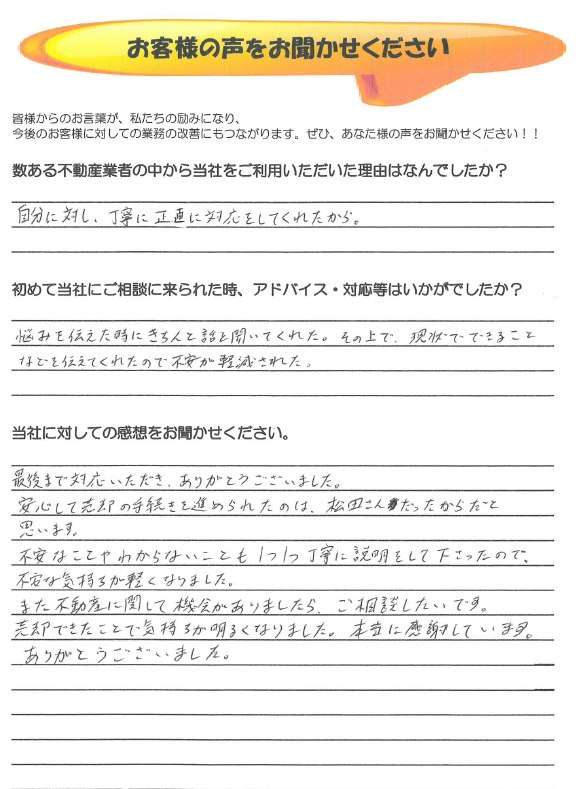 お客様の声をお聞かせください
皆様からのお言葉が、私たちの励みになり、
今後のお客様に対しての業務の改善にもつながります。ぜひ、あなた様の声をお聞かせください！！
数ある不動産業者の中から当社をご利用いただいた理由はなんでしたか？
自分に対し、丁寧に正直に対応をしてくれたから。
初めて当社にご相談に来られた時、アドバイス・対応等はいかがでしたか？
悩みを伝えた時にきちんと話を聞いてくれた。その上で、現状でできること
などを伝えてくれたので不安が軽減された。
当社に対しての感想をお聞かせください。
最後まで対応いただき、ありがとうございました。
安心して売却の手続きを進められたのは、松田さんだったからだと
思います。
不安なことやわからないことも1つ1つ丁寧に説明をして下さったので、
不安な気持ちが軽くなりました。
また不動産に関して機会がありましたら、ご相談したいです。
売却できたことで気持ちが明るくなりました。本当に感謝しています。
ありがとうございました。